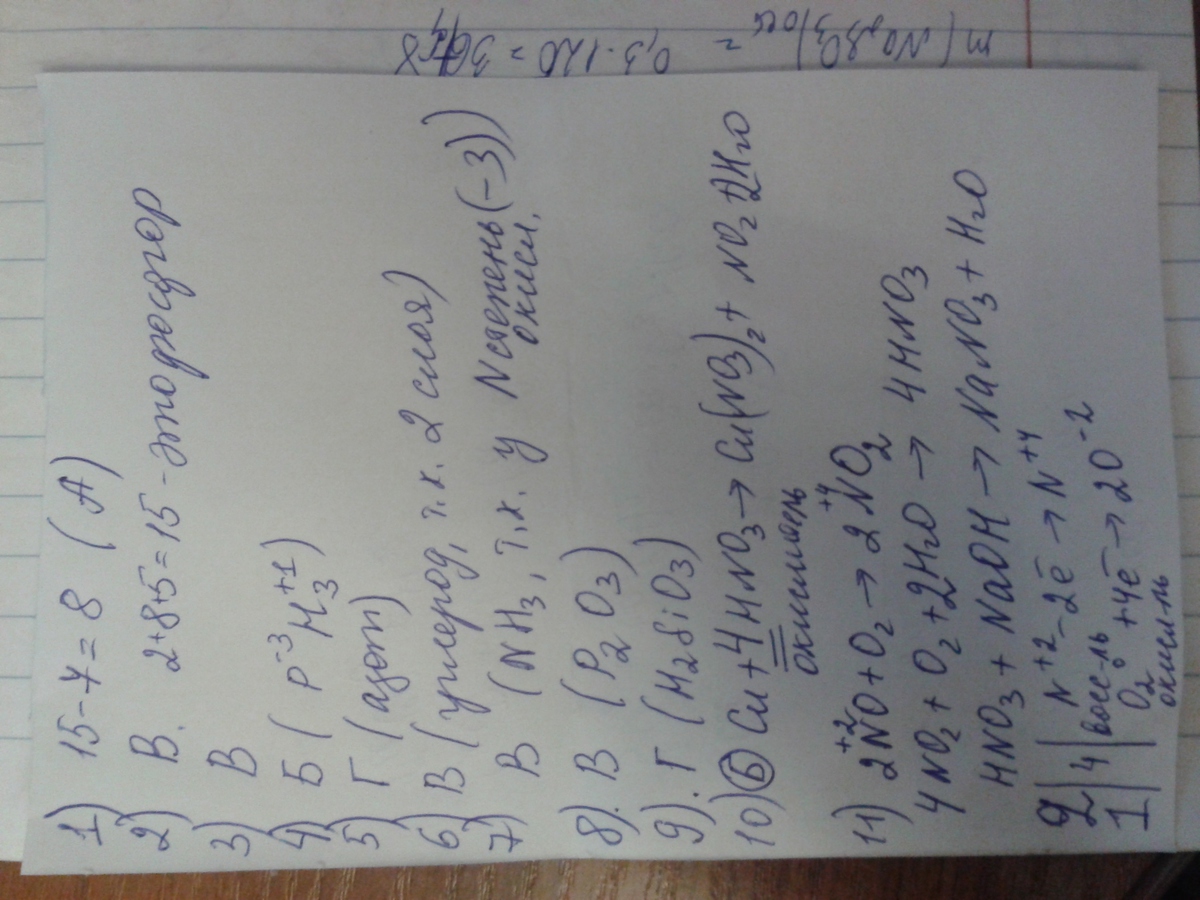 m(Na2SO3)осн = 0,3·120 = 36
1) 15-7=8 (А)
2) В. 2+8+5=15 - это фосфор
3) В
4) Б ( P⁻³H₃⁺¹)
5) Г (азот)
6) В (углерод, т.к. 2 слоя)
7) В (NH₃, т.к. у N степень (-3))
окисл.
8). В (P₂O₃)
9). Г (H₂SiO₃)
10) Б Cu + 4HNO₃ → Cu(NO₃)₂ + NO₂ + 2H₂O
окислитель
11) 2N⁺²O + O₂ → 2N⁺⁴O₂
4NO₂ + O₂ + 2H₂O → 4HNO₃
HNO₃ + NaOH → NaNO₃ + H₂O
2 | 4 | N⁺² - 2ē → N⁺⁴
восс-ль
1 | O₂⁰ + 4ē → 2O⁻²
окисл-ль